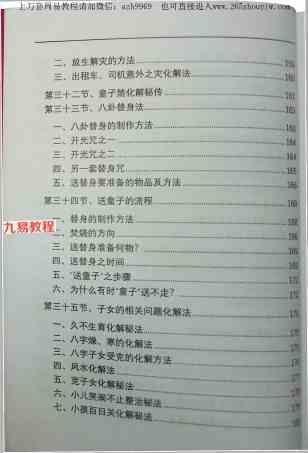 上万套周易教程请加微信：azh9969 也可直接进入www.265zhouyiw.com
二、放生解灾的方法
三、出租车、司机意外之灾化解法
第三十二节、童子煞化解秘传 161
第三十三节、八卦替身法
一、八卦替身的制作方法
二、开光咒之一
三、开光咒之二
四、另一套替身咒
五、送替身要准备的物品及方法
第三十四节、送童子的流程
一、替身的制作方法
二、焚烧的方向
三、送替身准备何物？
四、送替身之时间
五、“送童子”之步骤
六、为什么有时“童子”送不走？
第三十五节、子女的相关问题化解法
一、久不生育化解秘法
二、八字燥、寒的化解法
三、八字子女受克的化解方法
四、风水化解法
五、克子女化解秘法
六、小儿哭闹不止整治秘法
七、小孩百日关化解秘法
九易教程